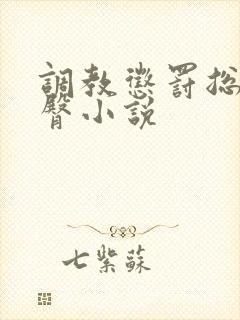 調教懲罰
臀小說
七紫蘇